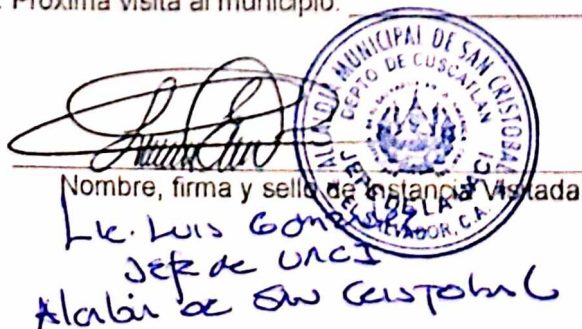 Próxima visita al municipio:
ALCALDIA MUNICIPAL DE SAN CRISTOBAL
DEPTO DE CUSCATLAN
JEFE DE LA UACI
EL SALVADOR, C.A.
Nombre, firma y sello de Instancia Visitada
Lic. Luis
Jefe de UACI
de San Cristobal